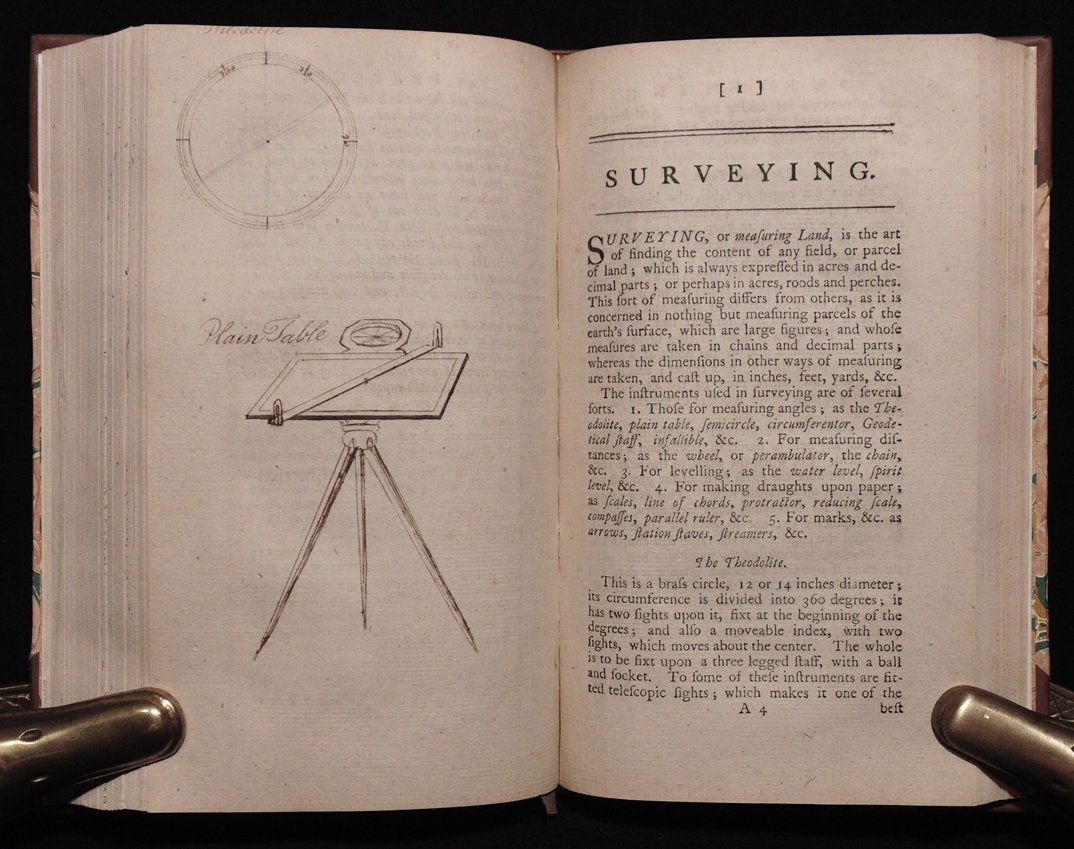 Theodolite
360
Plain Table
[ 1 ]
SURVEYING.
SURVEYING, or meaſuring Land, is the art
of finding the content of any field, or parcel
of land ; which is always expreſſed in acres and de-
cimal parts ; or perhaps in acres, roods and perches.
This ſort of meaſuring differs from others, as it is
concerned in nothing but meaſuring parcels of the
earth's ſurface, which are large figures ; and whoſe
meaſures are taken in chains and decimal parts ;
whereas the dimenſions in other ways of meaſuring
are taken, and caſt up, in inches, feet, yards, &c.
The inſtruments uſed in ſurveying are of ſeveral
ſorts. 1. Thoſe for meaſuring angles ; as the The-
odolite, plain table, ſemicircle, circumferentor, Geode-
tical ſtaff, infallible, &c. 2. For meaſuring diſ-
tances ; as the wheel, or perambulator, the chain,
&c. 3. For levelling ; as the water level, ſpirit
level, &c. 4. For making draughts upon paper ;
as ſcales, line of chords, protractor, reducing ſcale,
compaſſes, parallel ruler, &c. 5. For marks, &c. as
arrows, ſtation ſtaves, ſtreamers, &c.
The Theodolite.
This is a braſs circle, 12 or 14 inches diameter ;
its circumference is divided into 360 degrees ; it
has two ſights upon it, fixt at the beginning of the
degrees ; and alſo a moveable index, with two
ſights, which moves about the center. The whole
is to be fixt upon a three legged ſtaff, with a ball
and ſocket. To ſome of theſe inſtruments are fit-
ted teleſcopic ſights ; which makes it one of the
A 4 beſt